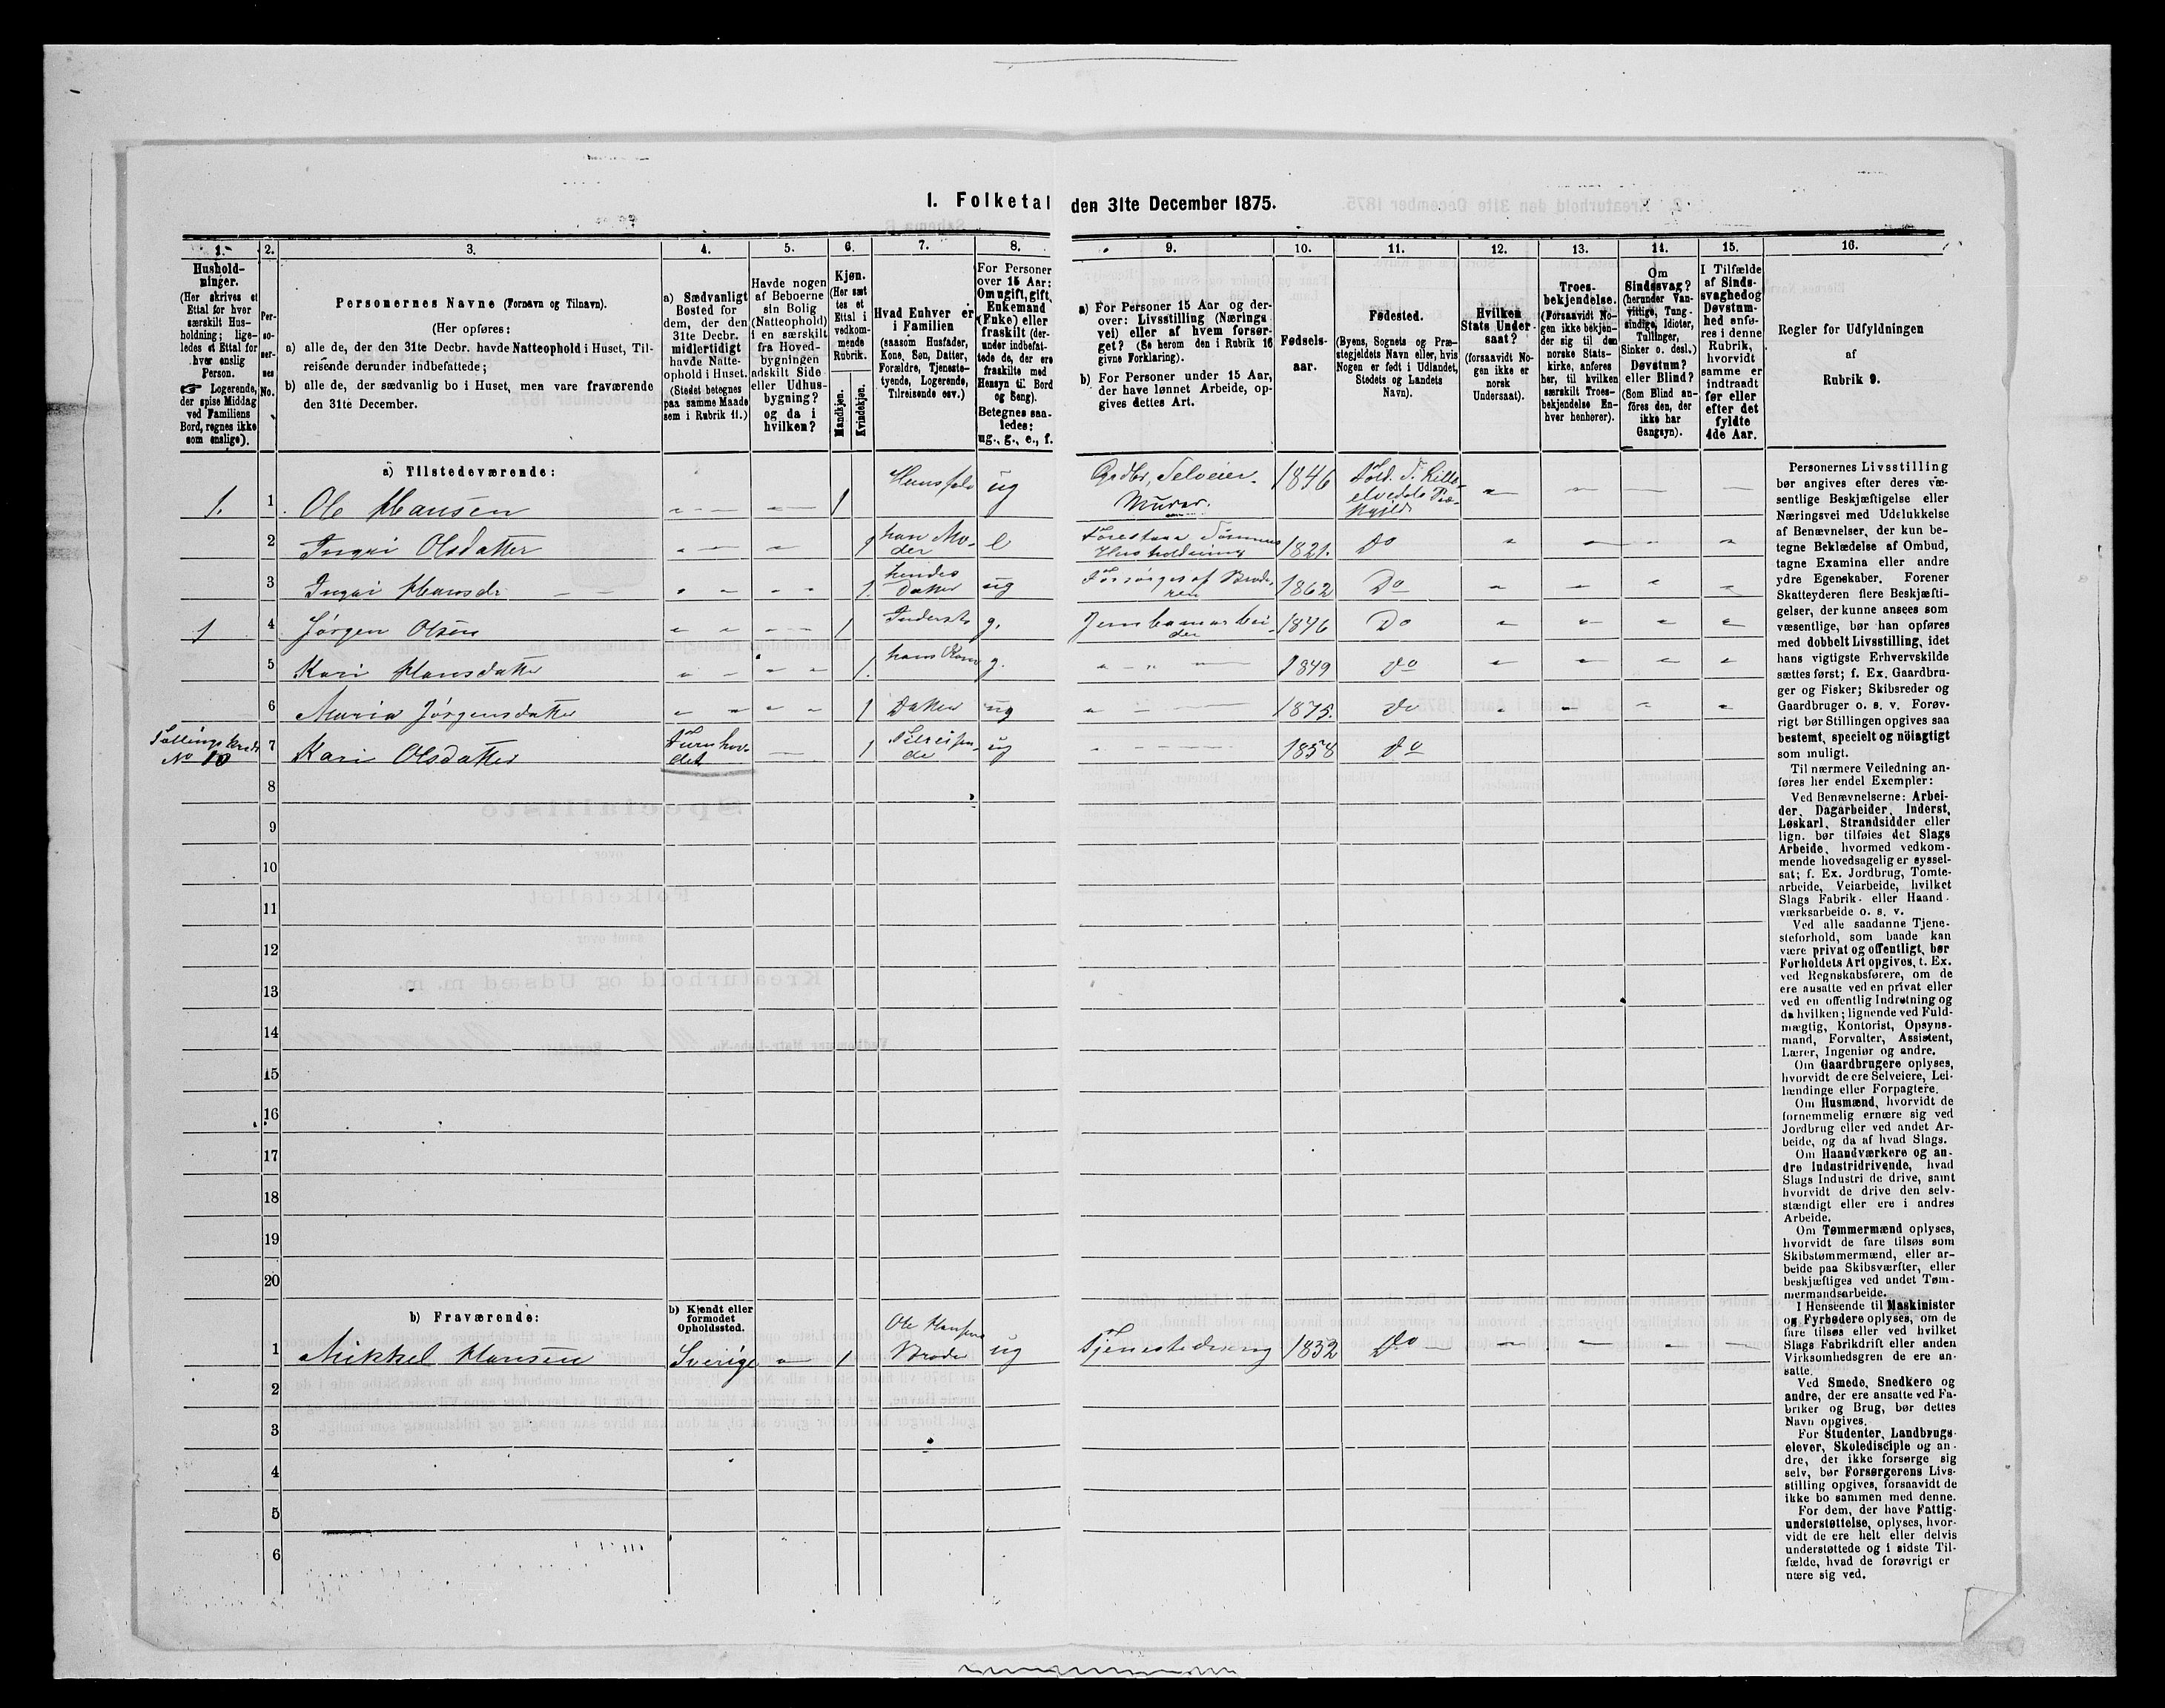 1. Folketal den 31te December 1875.
1. 2. 3. 4. 5. 6. 7. 8. 9. 10. 11. 12. 13. 14. 15. 16.
Hushold-
ninger.
(Her skrives et
Ettal for hver
særskilt Hus-
holdning; lige-
ledes et Ettal for
hver enslig
Person.
☞ Logerende,
der spise Middag
ved Familiens
Bord, regnes ikke
som enslige).
Per-
so-
ner-
nes
No.
Personernes Navne (Fornavn og Tilnavn).
(Her opføres:
a) alle de, der den 31te Decbr. havde Natteophold i Huset, Til-
reisende derunder indbefattede;
b) alle de, der sædvanlig bo i Huset, men vare fraværende
den 31te December.
a) Sædvanligt
Bosted for
dem, der den
31te Decbr.
midlertidigt
havde Natte-
ophold i Huset.
(Stedet betegnes
paa samme Maade
sem i Rubrik 11.)
Havde nogen
af Beboerne
sin Bolig
(Natteophold)
i en særskilt
fra Hoved-
bygningen
adskilt Side
eller Udhus-
bygning?
og da i
hvilken?
Kjøn.
(Her sæt
tes et
Ettal i
vedkom-
mende
Rubrik.
Mandkjøn.
Kvindekjøn.
Hvad Enhver er
i Familien
(saasom Husfader,
Kone, Søn, Datter,
Forældre, Tjeneste-
tyende, Logerende,
Tilreisende osv.)
For Personer
over 15 Aar:
Om ugift, gift,
Enkemand
(Enke) eller
fraskilt (der-
under indbefat-
tede de, der ere
fraskilte med
Hensyn til Bord
og Seng).
Betegnes saa-
ledes:
ug., g., e., f.
a) For Personer 15 Aar og der-
over: Livsstilling (Nærings
vei) eller af hvem forsør-
get? (Se herom den i Rubrik 16
givne Forklaring).
b) For Personer under 15 Aar,
der have lønnet Arbeide, op-
gives dettes Art.
Fødsels-
aar.
Fødested.
(Byens, Sognets og Præ-
stegjeldets Navn eller, hvis
Nogen er født i Udlandet,
Stedets og Landets
Navn).
Hvilken
Stats Under-
saat?
(forsaavidt No-
gen ikke er
norsk
Undersaat).
Troes-
bekjendelse.
(Forsaavidt No-
gen ikke bekjen-
der sig til den
norske Stats-
kirke, anføres
her, til hvilken
særskilt Troes-
bekjendelse En-
hver henhører).
Om
Sindssvag?
(herunder Van-
vittige, Tung-
sindige, Idioter,
Tullinger,
Sinker o. desl.)
Døvstum?
eller Blind?
(Som Blind an-
föres den, der
ikke har
Gangsyn).
I Tilfælde
af Sinds-
svaghed og
Døvstum-
hed anfø-
res i denne
Rubrik,
hvorvidt
samme er
indtraadt
før eller
efter det
fyldte
4de Aar.
Regler for Udfyldningen
af
Rubrik 9.
a) Tilstedeværende:
1. 1 Ole Hansen 1 ug Grdbr, Selveier. Murer. 1846
2 Ingri Olsdatter 1 hans Mo-
der e 1821. Do
3 Ingri Hansdr 1. hendes
Datter ug Forsørges af Brode-
ren 1862 Do
1 4 Jørgen Olsen 1 Inderst g. 1846 Do
5 Kari Hansdatter 1. hans Kone g. 1849 Do
6 Maria Jørgensdatter 1 Datter ug 1875. Do
No 10 7 Kari Olsdatter 1 Tilreisen-
de ug 1858 Do
8
9
10
11
12
13
14
15
16
17
18
19
20
b) Fraværende:
b) Kjendt eller
formodet
Opholdssted.
1 Mikkel Hansen Sverige 1 Ole Hansens
Broder ug Tjenestedreng 1832 Do
2
3
4
5
6
Personernes Livsstilling
bør angives efter deres væ-
sentlige Beskjæftigelse eller
Næringsvei med Udelukkelse
af Benævnelser, der kun be-
tegne Beklædelse af Ombud,
tagne Examina eller andre
ydre Egenskaber. Forener
Skatteyderen flere Beskjæfti-
gelser, der kunne ansees som
væsentlige, bør han opføres
med dobbelt Livsstilling, idet
hans vigtigste Erhvervskilde
sættes først; f. Ex. Gaardbru-
ger og Fisker; Skibsreder og
Gaardbruger o. s. v. Forøv-
rigt bør Stillingen opgives saa
bestemt, specielt og nöiagtigt
som muligt.
Til nærmere Veiledning an-
føres her endel Exempler:
Ved Benævnelserne: Arbei-
der, Dagarbeider, Inderst,
Løskarl, Strandsidder eller
lign. bør tilføies det Slags
Arbeide, hvormed vedkom-
mende hovedsagelig er syssel-
sat; f. Ex. Jordbrug, Tomte-
arbeide, Veiarbeide, hvilket
Slags Fabrik- eller Haand-
værksarbeide o. s. v.
Ved alle saadanne Tjene-
steforhold, som baade kan
være privat og offentligt, bør
Forholdets Art opgives, t. Ex.
ved Regnskabsførere, om de
ere ansatte ved en privat eller
ved en offentlig Indretning og
da hvilken; lignende ved Fuld-
mægtig, Kontorist, Opsyns-
mand, Forvalter, Assistent,
Lærer, Ingeniør og andre.
Om Gaardbrugere oplyses,
hvorvidt de ere Selveiere, Lei-
lændinge eller Forpagtere.
Om Husmænd, hvorvidt de
fornemmelig ernære sig ved
Jordbrug eller ved andet Ar-
beide, og da af hvad Slags.
Om Haandværkere og an-
dre Industridrivende, hvad
Slags Industri de drive, samt
hvorvidt de drive den selv-
stændigt eller ere i andres
Arbeide.
Om Tømmermænd oplyses,
hvorvidt de fare tilsøs som
Skibstømmermænd, eller ar-
beide paa Skibsværfter, eller
beskjæftiges ved andet Tøm-
mermandsarbeide.
I Henseende til Maskinister
og Fyrbødere oplyses, om de
fare tilsøs eller ved hvilket
Slags Fabrikdrift eller anden
Virksomhedsgren de ere an-
satte.
Ved Smede, Snedkere og
andre, der ere ansatte ved Fa-
briker og Brug, bør dettes
Navn opgives.
For Studenter, Landbrugs-
elever, Skoledisciple og an-
dre, der ikke forsørge sig
selv, bør Forsørgerens Livs-
stilling opgives, forsaavidt de
ikke bo sammen med denne.
For dem, der have Fattig-
understøttelse, oplyses, hvor-
vidt de ere helt eller delvis
understøttede og i sidste Til-
fælde, hvad de forøvrigt er
nære sig ved.